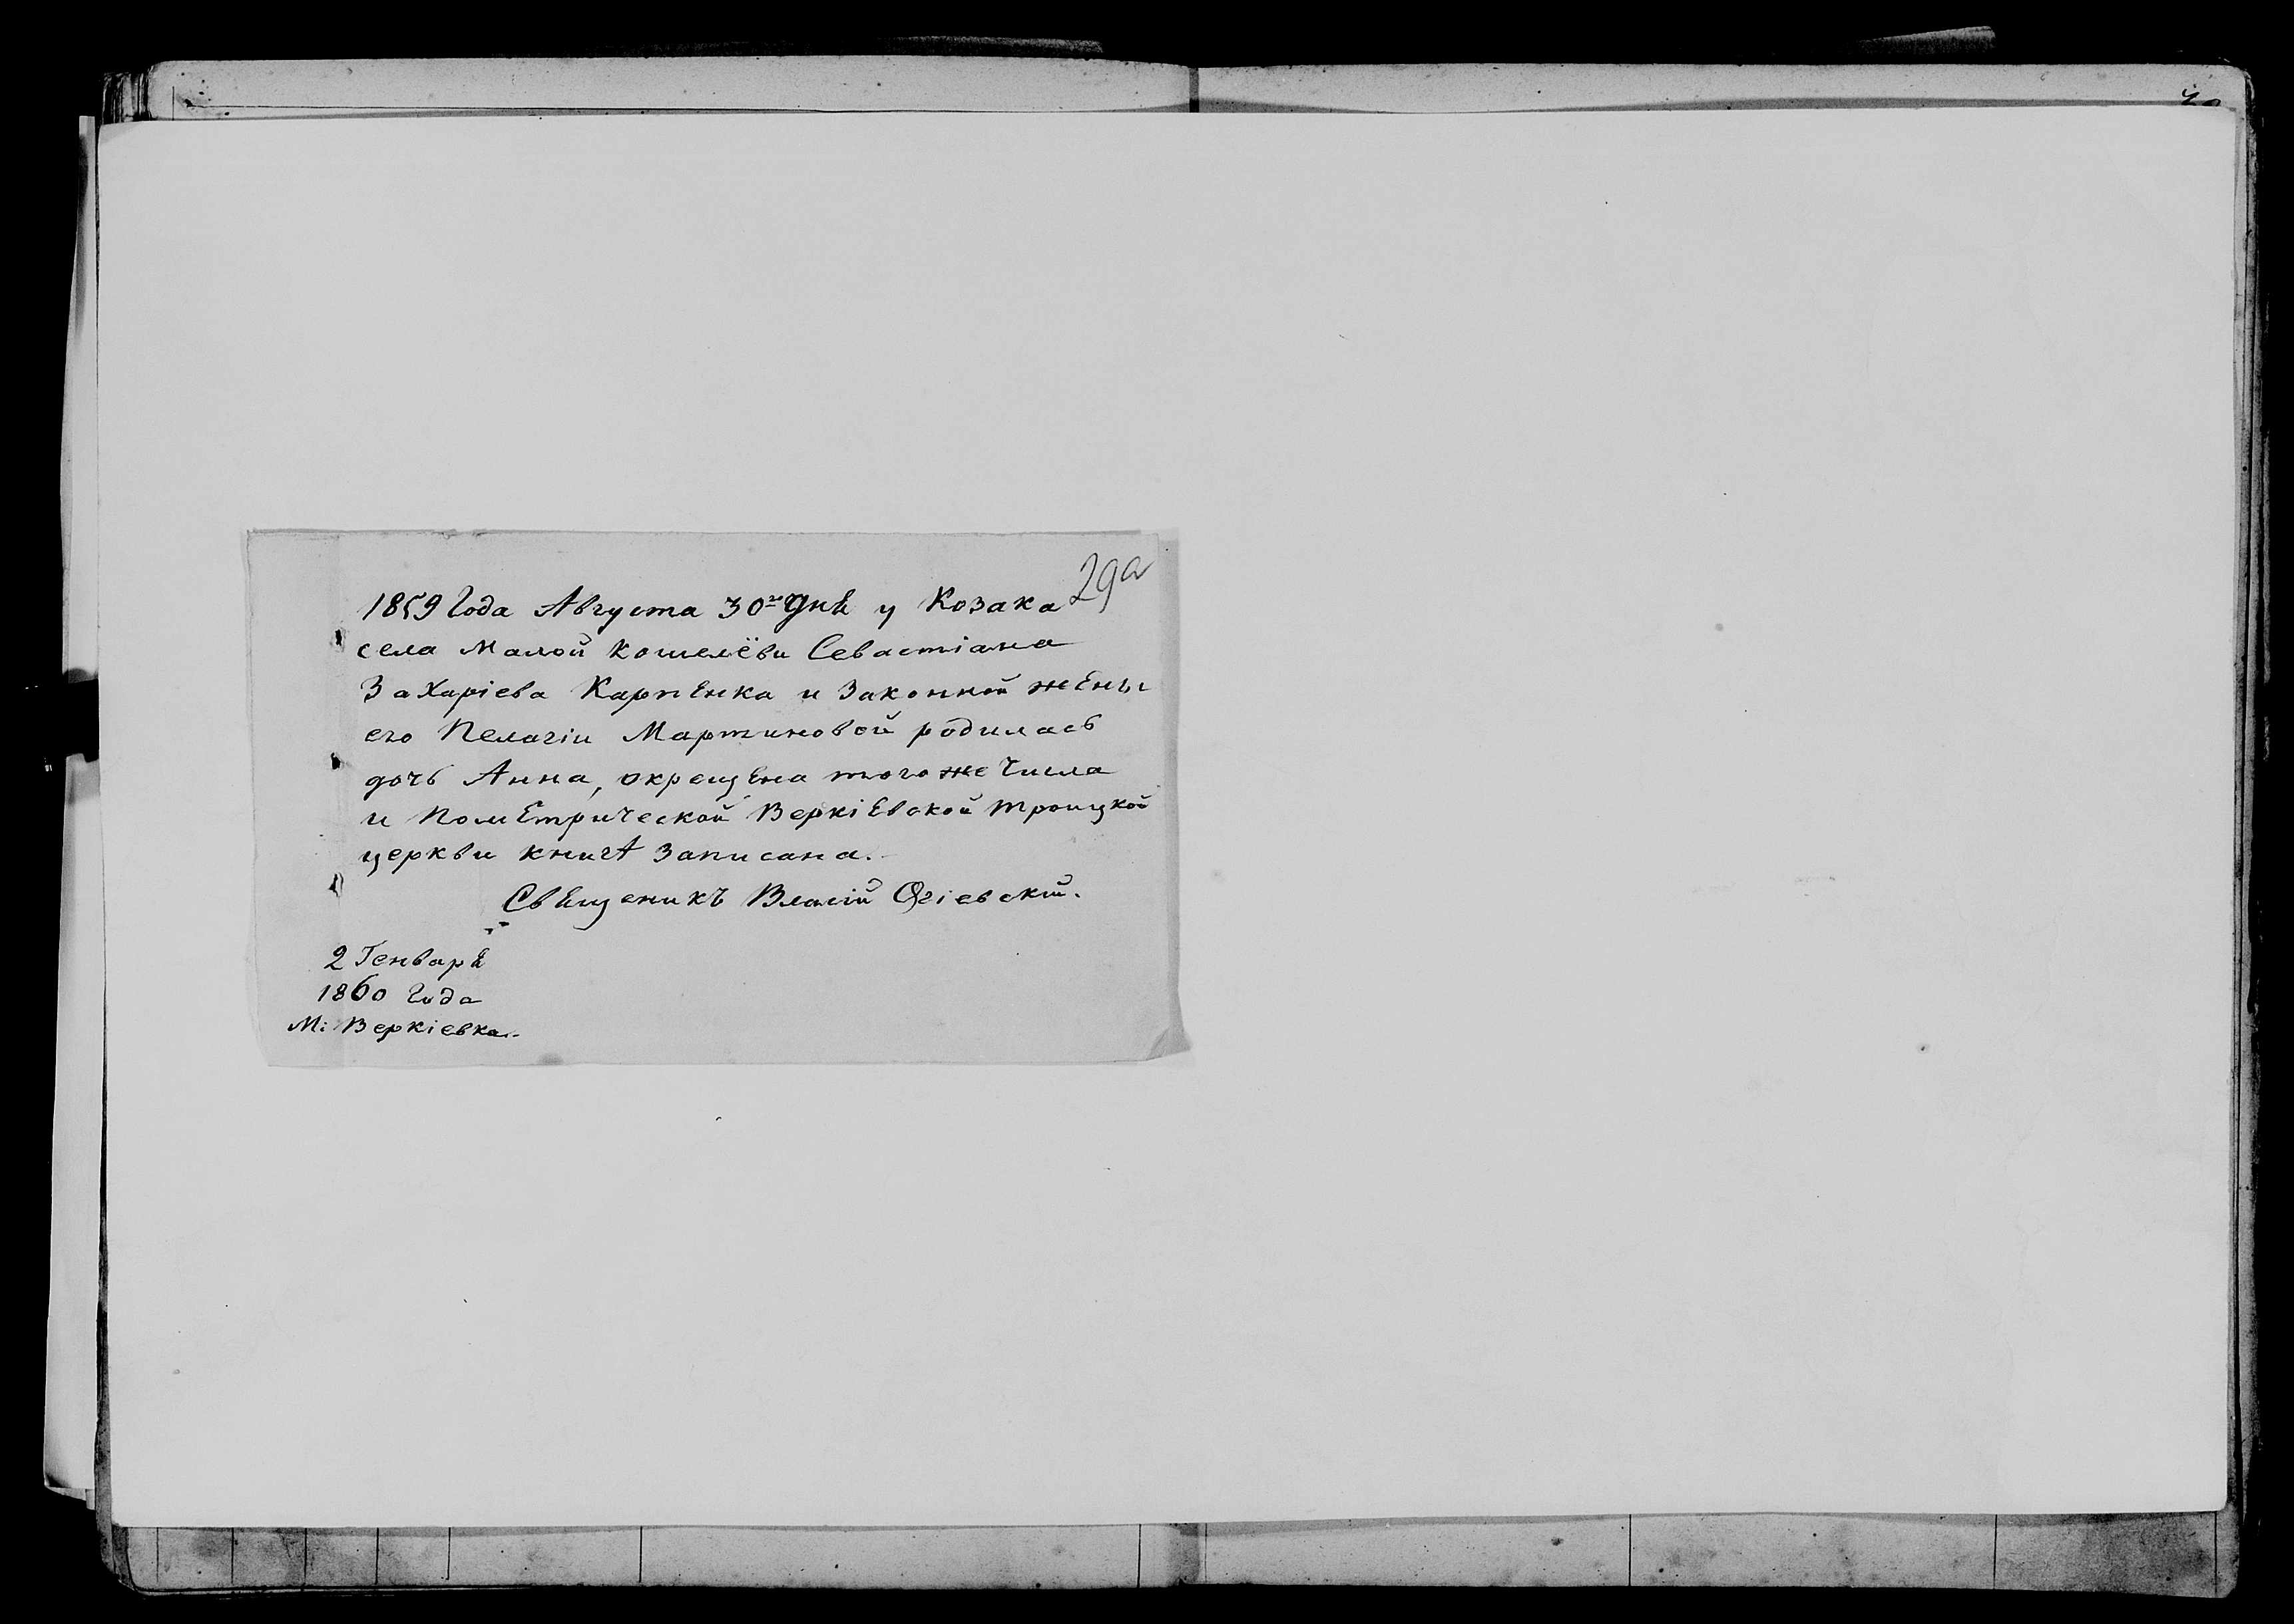 29а
1859 Года Августа 30го дня у Козака
села Малой Кошелёвки Севастіана
Захаріева Карпенка и Законной жены
его Пелагіи Мартиновой родилась
дочь Анна, окрещена того же Числа
и По метрической Веркіевской Троицкой
церкви книгѣ Записана.
Священикъ Власій Огіевскій.
2 Генваря
1860 Года
М: Веркіевка.